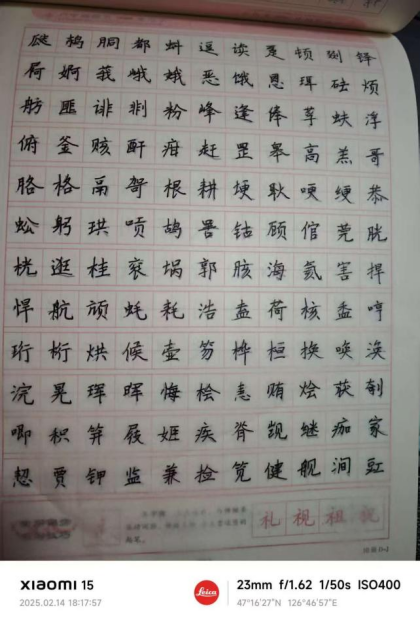 胴 都 蚪 逗 读 趸 顿 剟 铎
荷 婀 莪 峨 娥 恶 饿 恩 珥 砝 烦
舫 匪 诽 剕 粉 峰 逢 俸 莩 蚨 浮
俯 釜 赅 酐 疳 赶 罡 皋 高 羔 哥
胳 格 鬲 哿 根 耕 埂 耿 哽 绠 恭
蚣 躬 珙 唝 鸪 罟 钴 顾 倌 莞 胱
桄 逛 桂 衮 埚 郭 胲 海 氦 害 捍
悍 航 颃 蚝 耗 浩 盍 荷 核 盉 哼
珩 桁 烘 候 壶 笏 桦 桓 换 唤 涣
浣 晃 珲 晖 悔 桧 恚 贿 烩 获 剞
唧 积 笄 屐 姬 疾 脊 觊 继 痂 家
恝 贾 钾 监 兼 捡 笕 健 舰 涧 豇
礼 视 祖
XIAOMI 15
2025.02.14 18:17:57
Leica
23mm f/1.62 1/50s ISO400
47°16'27"N 126°46'57"E